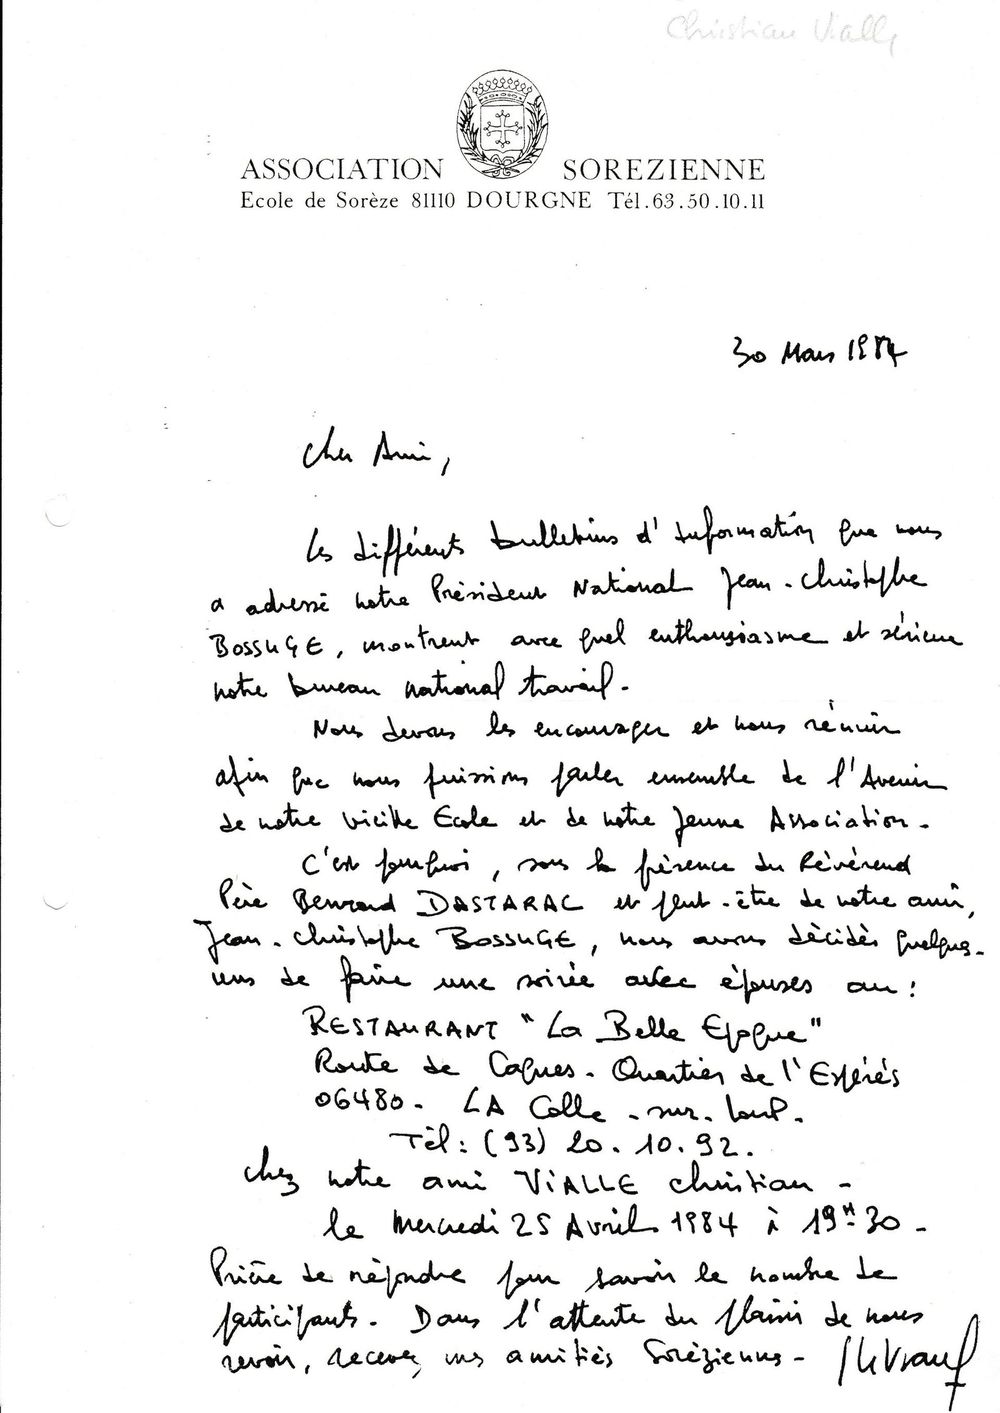 Christian Vialle
ASSOCIATION SOREZIENNE
Ecole de Sorèze 81110 DOURGNE Tél.63.50.10.11
30 Mars 1984
Cher Ami,
Les différents bulletins d'Information que nous
a adressé notre Président National Jean-Christophe
BOSSUGE, montrent avec quel enthousiasme et sérieux
notre bureau national travail.
Nous devons les encourager et nous réunir
afin que nous puissions parler ensemble de l'Avenir
de notre vieille Ecole et de notre Jeune Association.
C'est pourquoi, sous la présence du Révérend
Père Bernard DASTARAC et peut-être de notre ami,
Jean-Christophe BOSSUGE, nous avons décidés quelques-
uns de faire une soirée avec épouses au :
RESTAURANT "La Belle Epoque"
Route de Cagnes - Quartier de l'Espérés
06480 - LA Colle - sur - Loup.
Tél : (93) 20.10.92.
chez notre ami VIALLE Christian -
le Mercredi 25 Avril 1984 à 19H30 -
Prière de répondre pour savoir le nombre de
participants. Dans l'attente du plaisir de nous
revoir, recevez mes amitiés Soréziennes -